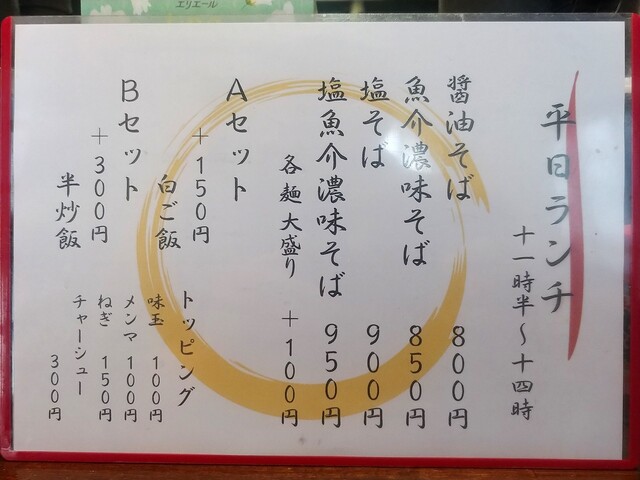 エリエール
平日ランチ
十一時半〜十四時
醤油そば 800円
魚介濃味そば 850円
塩そば 900円
塩魚介濃味そば 950円
各麺大盛り +100円
Aセット
+150円
白ご飯
Bセット
+300円
半炒飯
トッピング
味玉 100円
メンマ 100円
ねぎ 150円
チャーシュー
300円